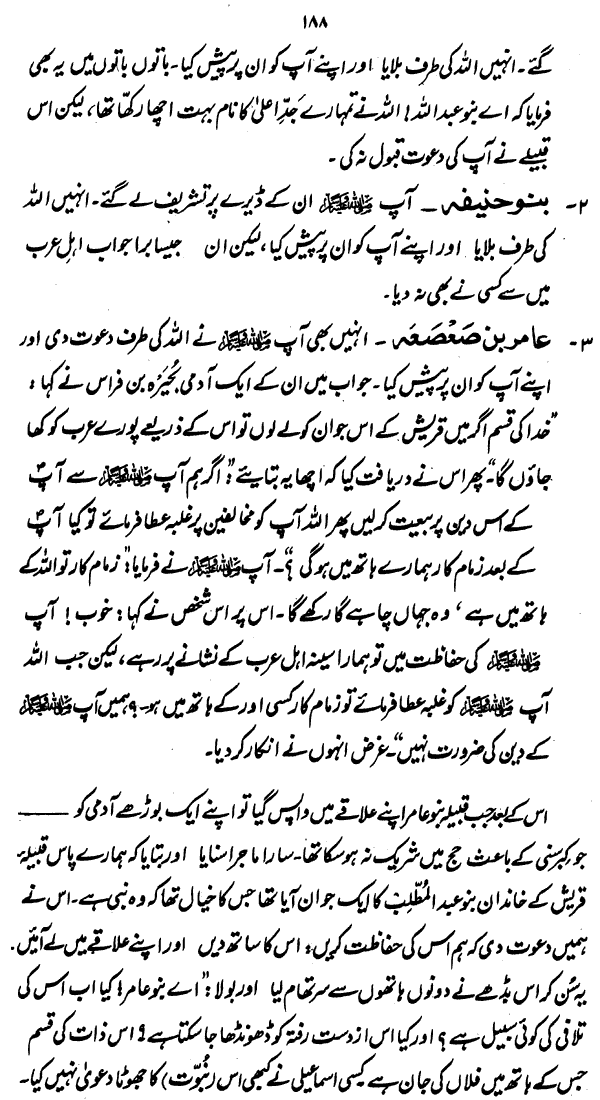 ۱۸۸
گئے۔ انہیں اللہ کی طرف بلایا اور اپنے آپ کو ان پر پیش کیا۔ باتوں باتوں میں یہ بھی
فرمایا کہ اے بنو عبداللہ! اللہ نے تمہارے جدِّ اعلیٰ کا نام بہت اچھا رکھا تھا، لیکن اس
قبیلے نے آپ کی دعوت قبول نہ کی۔
۲۔ بنو حنیفہ ۔ آپ ﷺ ان کے ڈیرے پر تشریف لے گئے۔ انہیں اللہ
کی طرف بلایا اور اپنے آپ کو ان پر پیش کیا، لیکن ان جیسا برا جواب اہلِ عرب
میں سے کسی نے بھی نہ دیا۔
۳۔ عامر بن صَعْصَعَہ ۔ انہیں بھی آپ ﷺ نے اللہ کی طرف دعوت دی اور
اپنے آپ کو ان پر پیش کیا۔ جواب میں ان کے ایک آدمی بُحَیْرَہ بن فراس نے کہا:
"خدا کی قسم اگر میں قریش کے اس جوان کو لے لوں تو اس کے ذریعے پورے عرب کو کھا
جاؤں گا"۔ پھر اس نے دریافت کیا کہ اچھا یہ بتایئے: "اگر ہم آپ ﷺ سے آپؐ
کے اس دین پر بیعت کر لیں پھر اللہ آپ کو مخالفین پر غلبہ عطا فرمائے تو کیا آپؐ
کے بعد زمام کار ہمارے ہاتھ میں ہوگی؟"۔ آپ ﷺ نے فرمایا: "زمام کار تو اللہ کے
ہاتھ میں ہے، وہ جہاں چاہے گا رکھے گا۔ اس پر اس شخص نے کہا: خوب! آپ
ﷺ کی حفاظت میں تو ہمارا سینہ اہل عرب کے نشانے پر رہے، لیکن جب اللہ
آپ ﷺ کو غلبہ عطا فرمائے تو زمام کار کسی اور کے ہاتھ میں ہو۔ ہمیں آپ ﷺ
کے دین کی ضرورت نہیں"۔ غرض انہوں نے انکار کر دیا۔
اس کے بعد جب قبیلہ بنو عامر اپنے علاقے میں واپس گیا تو اپنے ایک بوڑھے آدمی کو ——
جو کبر سنی کے باعث حج میں شریک نہ ہو سکا تھا۔ سارا ماجرا سنایا اور بتایا کہ ہمارے پاس قبیلۂ
قریش کے خاندان بنو عبدالمُطَّلِبْ کا ایک جوان آیا تھا جس کا خیال تھا کہ وہ نبی ہے۔ اس نے
ہمیں دعوت دی کہ ہم اس کی حفاظت کریں، اس کا ساتھ دیں اور اپنے علاقے میں لے آئیں۔
یہ سُن کر اس بڈھے نے دونوں ہاتھوں سے سر تھام لیا اور بولا: "اے بنو عامر! کیا اب اس کی
تلافی کی کوئی سبیل ہے؟ اور کیا اس از دست رفتہ کو ڈھونڈھا جا سکتا ہے؟ اس ذات کی قسم
جس کے ہاتھ میں فلاں کی جان ہے کسی اسماعیلی نے کبھی اس (نُبوّت) کا جھوٹا دعویٰ نہیں کیا۔